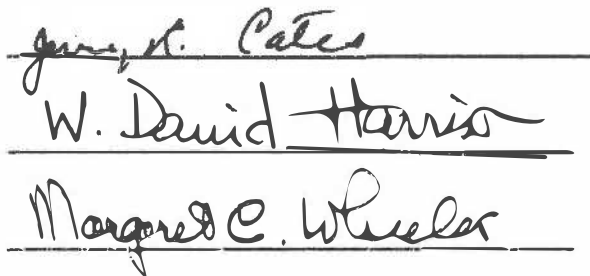 Jerry R. Cates
W. David Harris
Margaret C. Wheeler